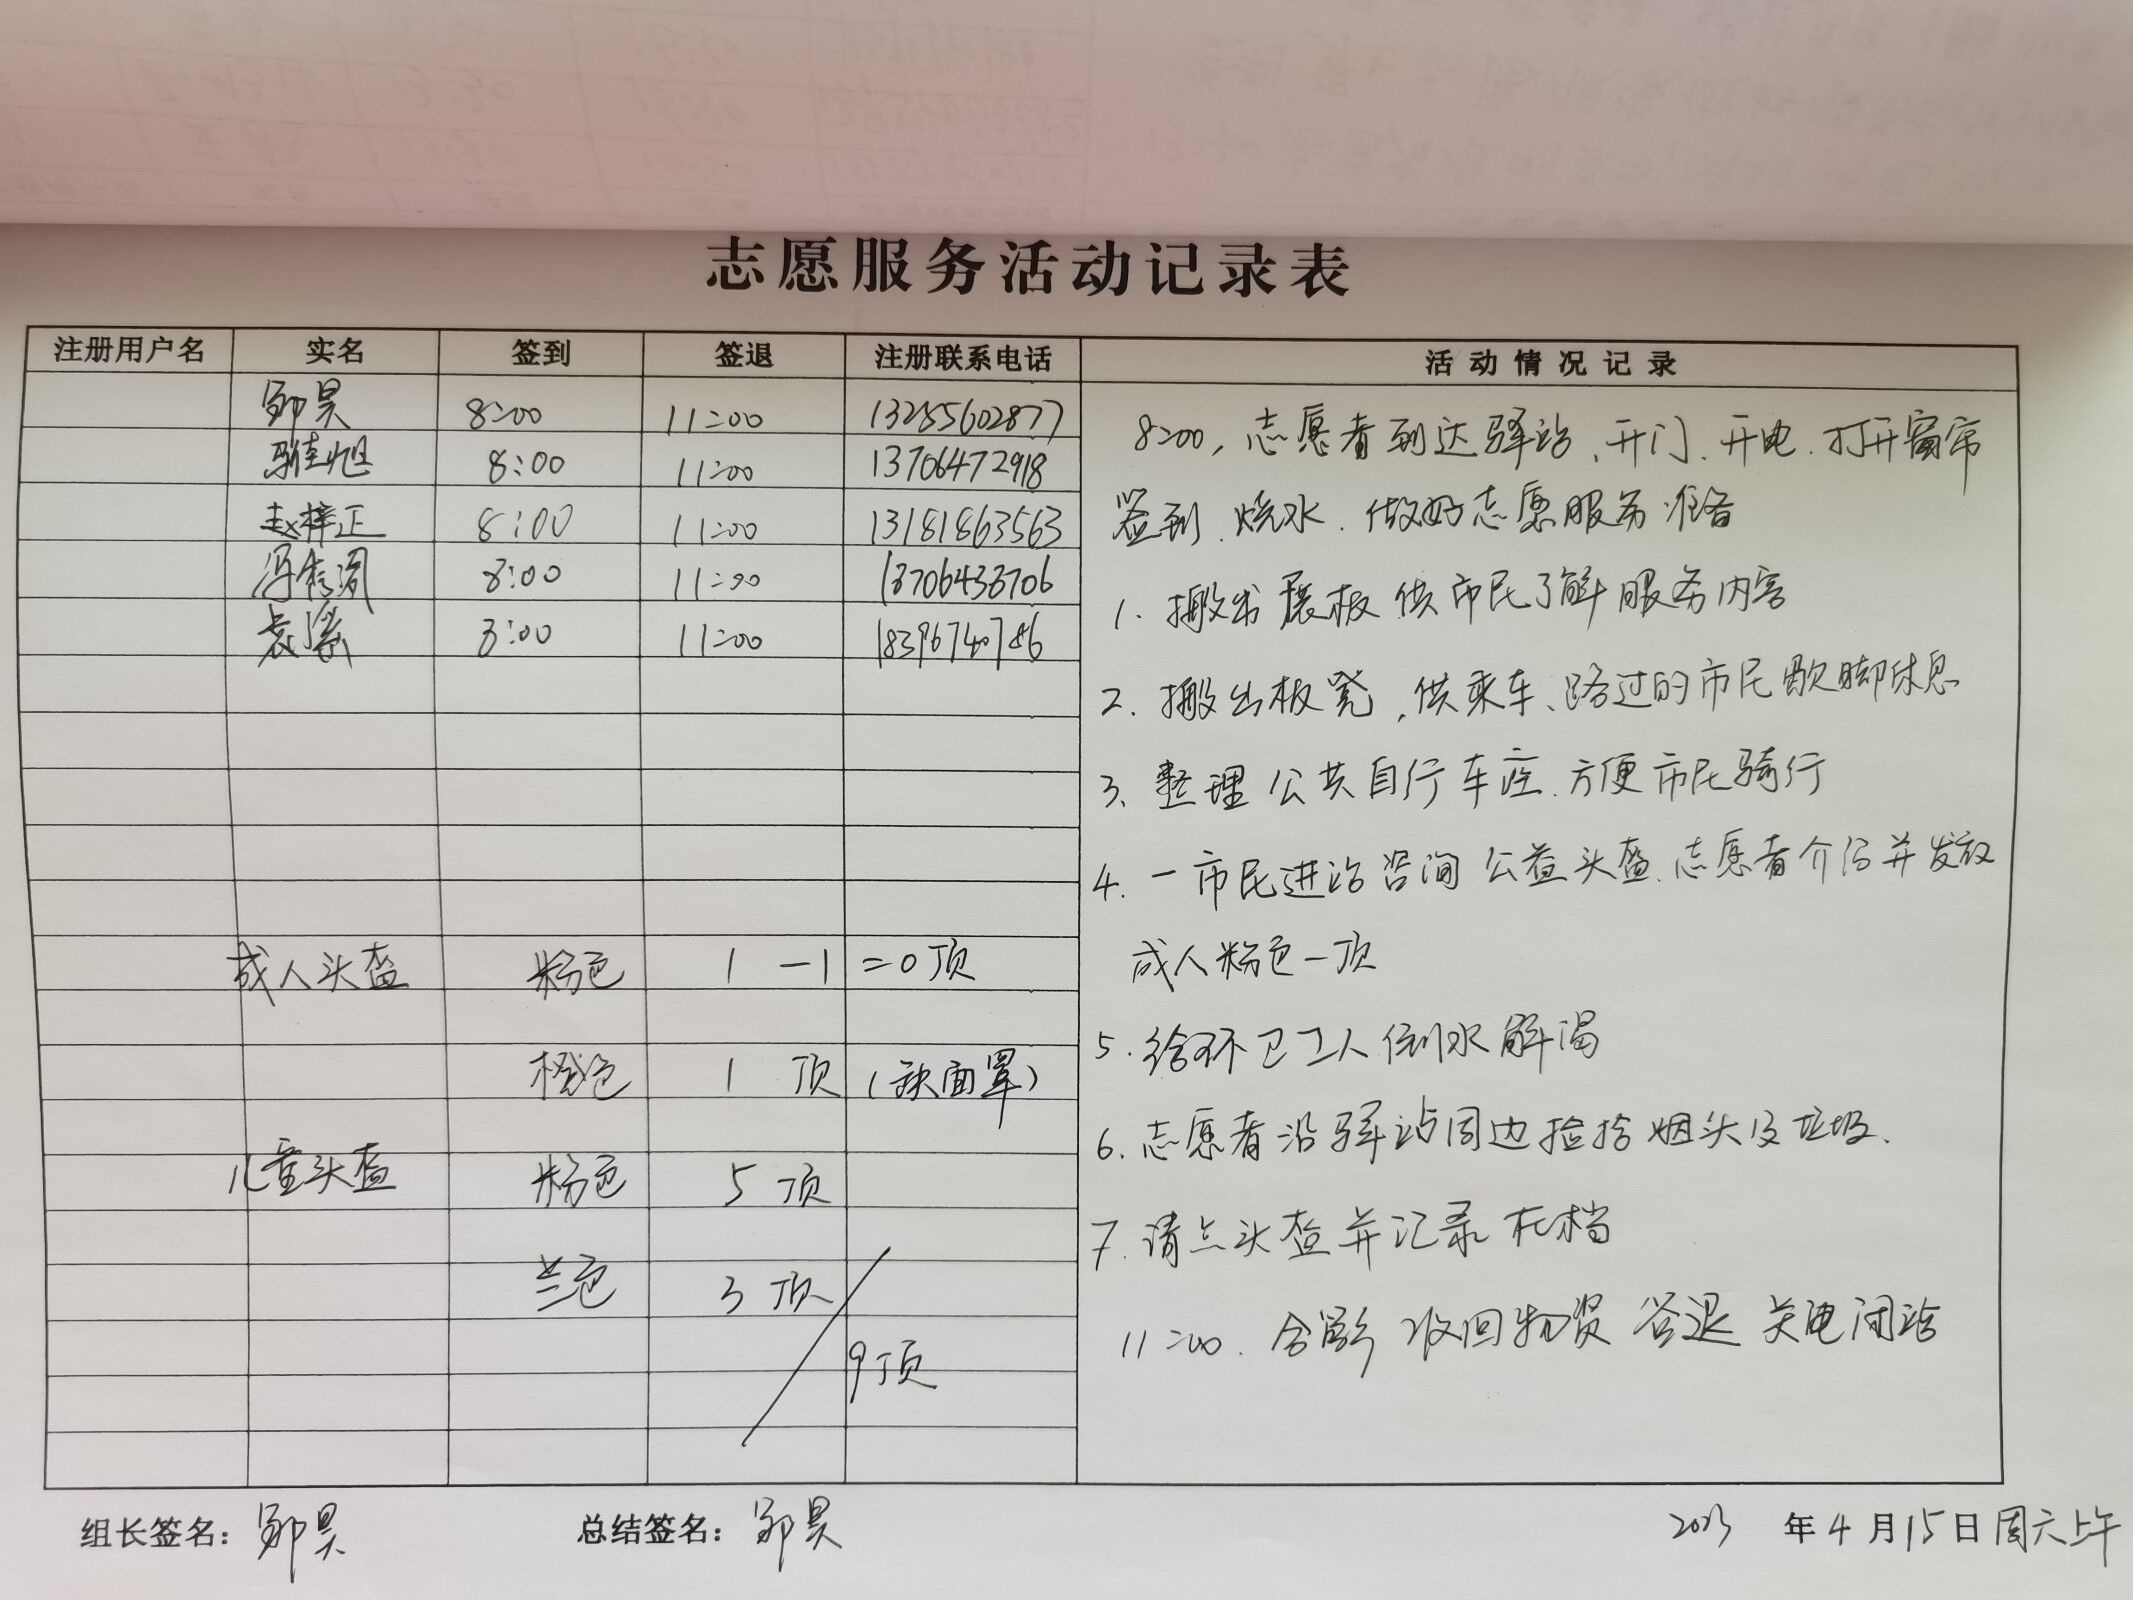 志愿服务活动记录表
注册用户名 实名 签到 签退 注册联系电话 活动情况记录
邹昊 8:00 11:00 13255602877
8:00 11:00 13706472918
赵梓正 8:00 11:00 13181863563
8:00 11:00 13706433706
袁 8:00 11:00 18396740786
成人头盔 粉色 1 -1 =0顶
橙色 1 顶 (缺面罩)
儿童头盔 粉色 5 顶
兰色 3 顶
9顶
8:00, 志愿者到达驿站、开门、开电、打开窗帘
签到、烧水、做好志愿服务准备
1. 搬出展板供市民了解服务内容
2. 搬出板凳,供乘车、路过的市民歇脚休息
3、整理公共自行车座、方便市民骑行
4. 一市民进站咨询公益头盔、志愿者介绍并发放
成人粉色一顶
5. 给环卫工人倒水解渴
6. 志愿者沿驿站周边捡拾烟头及垃圾.
7. 清点头盔并记录在档
11:00. 合影 收回物资 签退 关电闭站
组长签名: 邹昊 总结签名: 邹昊 2023 年 4 月 15 日 周六上午